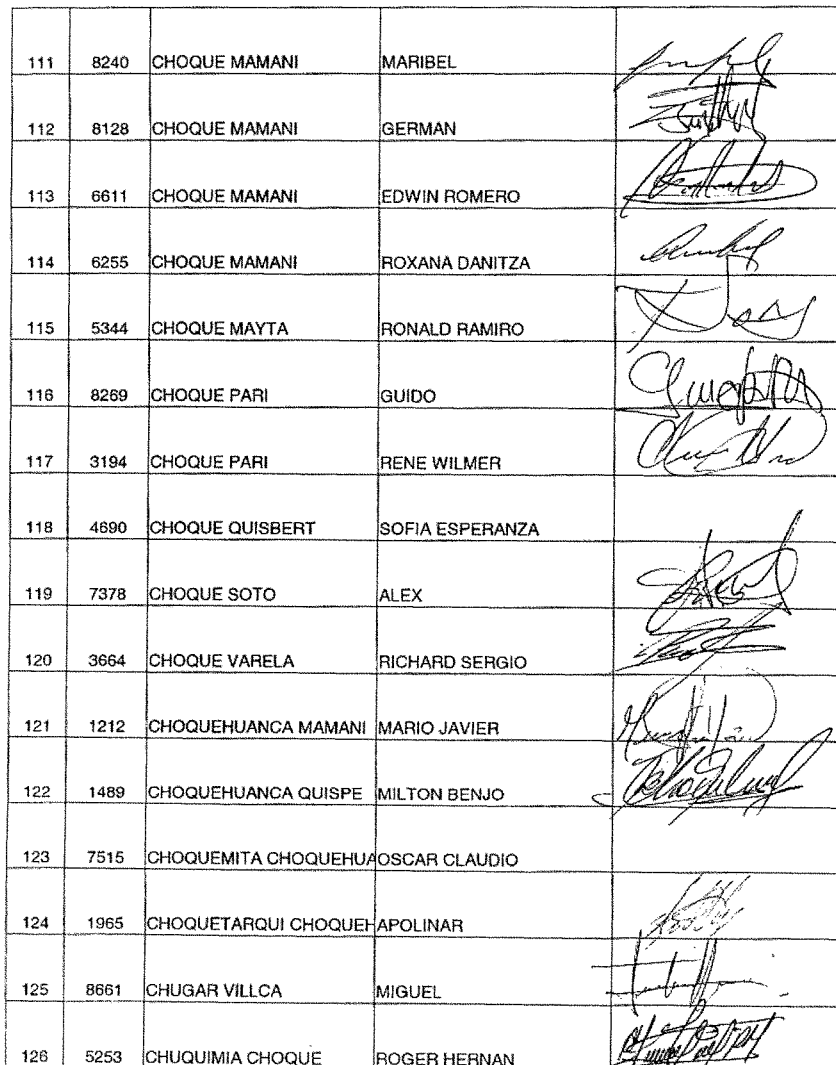 111 8240 CHOQUE MAMANI MARIBEL
112 8128 CHOQUE MAMANI GERMAN
113 6611 CHOQUE MAMANI EDWIN ROMERO
114 6255 CHOQUE MAMANI ROXANA DANITZA
115 5344 CHOQUE MAYTA RONALD RAMIRO
116 8269 CHOQUE PARI GUIDO
117 3194 CHOQUE PARI RENE WILMER
118 4690 CHOQUE QUISBERT SOFIA ESPERANZA
119 7378 CHOQUE SOTO ALEX
120 3664 CHOQUE VARELA RICHARD SERGIO
121 1212 CHOQUEHUANCA MAMANI MARIO JAVIER
122 1489 CHOQUEHUANCA QUISPE MILTON BENJO
123 7515 CHOQUEMITA CHOQUEHUA OSCAR CLAUDIO
124 1965 CHOQUETARQUI CHOQUEH APOLINAR
125 8661 CHUGAR VILLCA MIGUEL
126 5253 CHUQUIMIA CHOQUE ROGER HERNAN